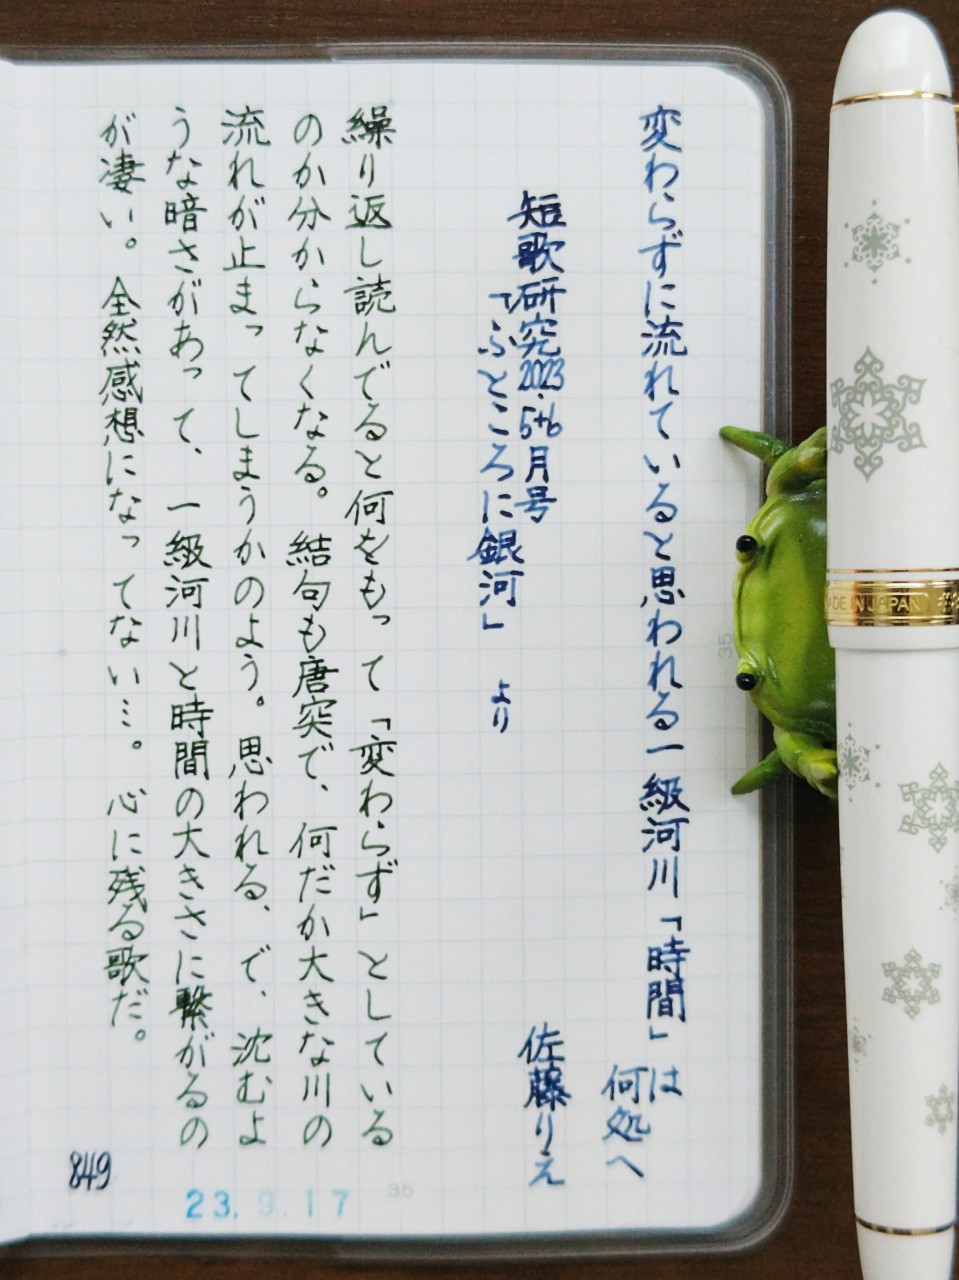 変わらずに流れていると思われる一級河川「時間」は
何処へ
短歌研究2023.5+6月号
「ふところに銀河」 より
佐藤りえ
繰り返し読んでると何をもって「変わらず」としている
のか分からなくなる。結句も唐突で、何だか大きな川の
流れが止まってしまうかのよう。思われる、で、沈むよ
うな暗さがあって、一級河川と時間の大きさに繋がるの
が凄い。全然感想になってない…。心に残る歌だ。
849
23.9.17
36
35
MADE IN JAPAN